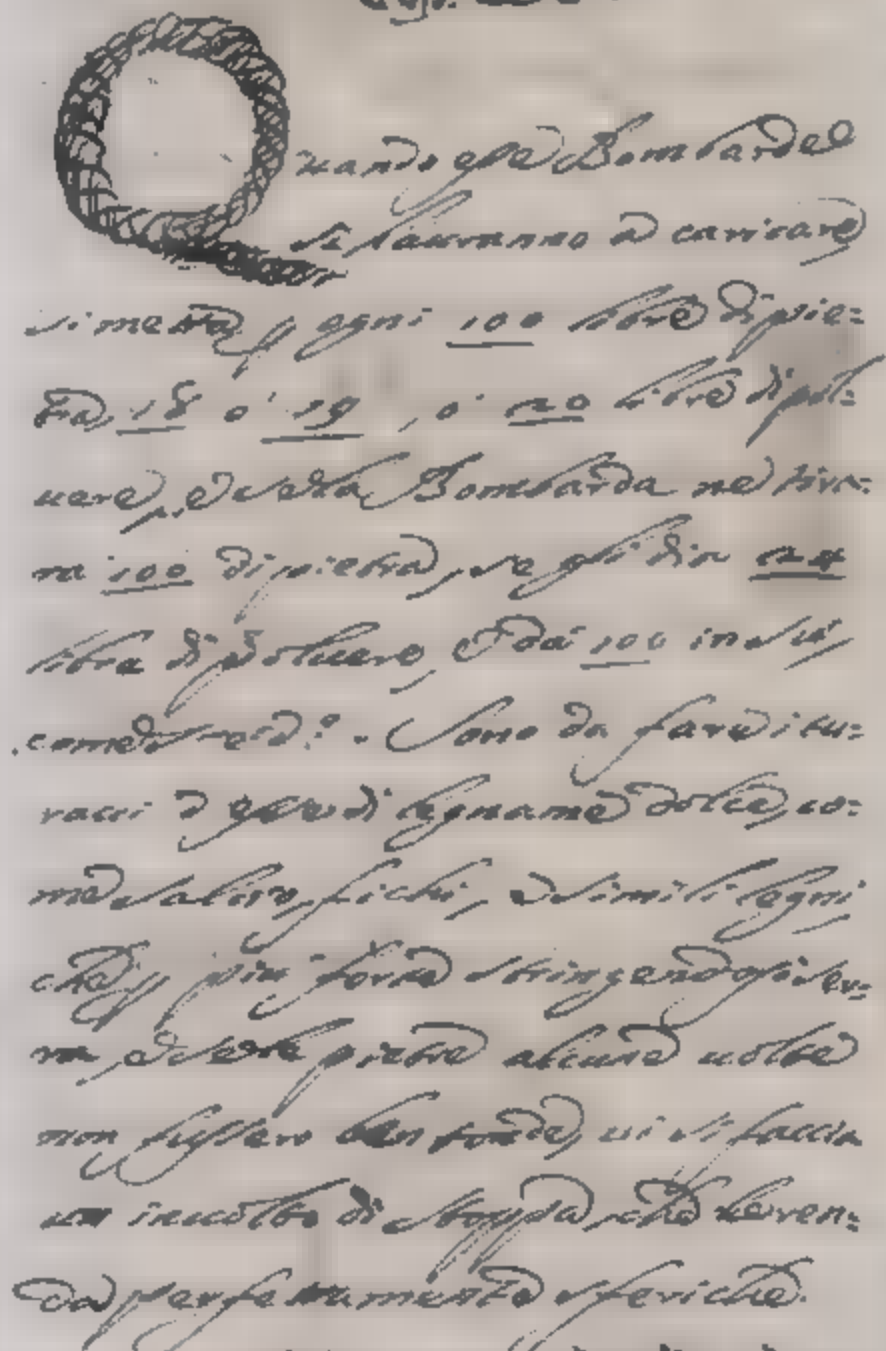 Quando esse Bombarde
si hauranno à caricare
si metta p ogni 100 libre di pie=
tra, 18 ò 19, ò 20 libre di pol=
uere, e se detta Bombarda ne tira=
rà 100 di pietra, se gli dia 24
libre di poluere, e da 100 in sù,
come è Sono da fare i tu=
racci d esse di legname dolce, co=
me salice, fichi, e simili legni
che p più forte stringendosi ser=
ra, e se dette pietre alcune uolte
non fussero ben tonde, ui si faccia
un inuolto di stoppa, che le ren=
da perfettamente sferiche.